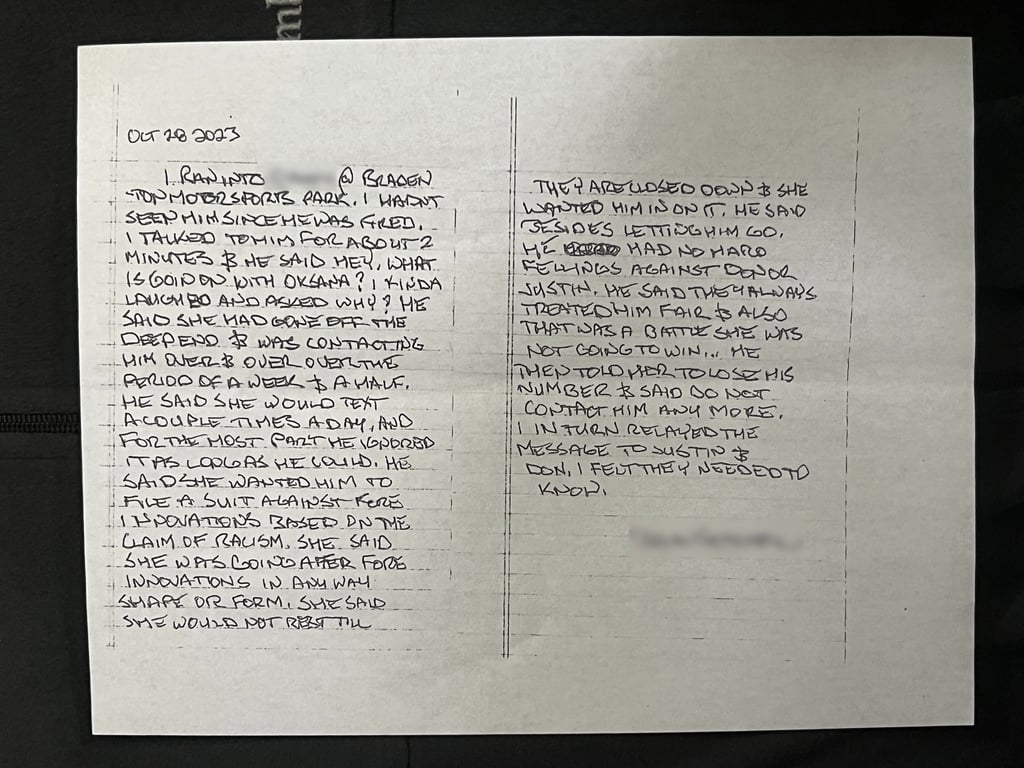 OCT 28 2023
I RAN INTO @ BRADEN
-TON MOTORSPORTS PARK. I HADN'T
SEEN HIM SINCE HE WAS FIRED.
I TALKED TO HIM FOR ABOUT 2
MINUTES & HE SAID HEY, WHAT
IS GOIN ON WITH OKSANA? I KINDA
LAUGHED AND ASKED WHY? HE
SAID SHE HAD GONE OFF THE
DEEP END & WAS CONTACTING
HIM OVER & OVER OVER THE
PERIOD OF A WEEK & A HALF.
HE SAID SHE WOULD TEXT
A COUPLE TIMES A DAY, AND
FOR THE MOST PART HE IGNORED
IT AS LONG AS HE COULD. HE
SAID SHE WANTED HIM TO
FILE A SUIT AGAINST FORE
INNOVATIONS BASED ON THE
CLAIM OF RACISM. SHE SAID
SHE WAS GOING AFTER FORE
INNOVATIONS IN ANY WAY
SHAPE OR FORM. SHE SAID
SHE WOULD NOT REST TILL
THEY ARE CLOSED DOWN & SHE
WANTED HIM IN ON IT. HE SAID
BESIDES LETTING HIM GO,
HE HAD NO HARD
FELLINGS AGAINST DON OR
JUSTIN. HE SAID THEY ALWAYS
TREATED HIM FAIR & ALSO
THAT WAS A BATTLE SHE WAS
NOT GOING TO WIN... HE
THEN TOLD HER TO LOSE HIS
NUMBER & SAID DO NOT
CONTACT HIM ANY MORE.
I IN TURN RELAYED THE
MESSAGE TO JUSTIN &
DON. I FELT THEY NEEDED TO
KNOW.